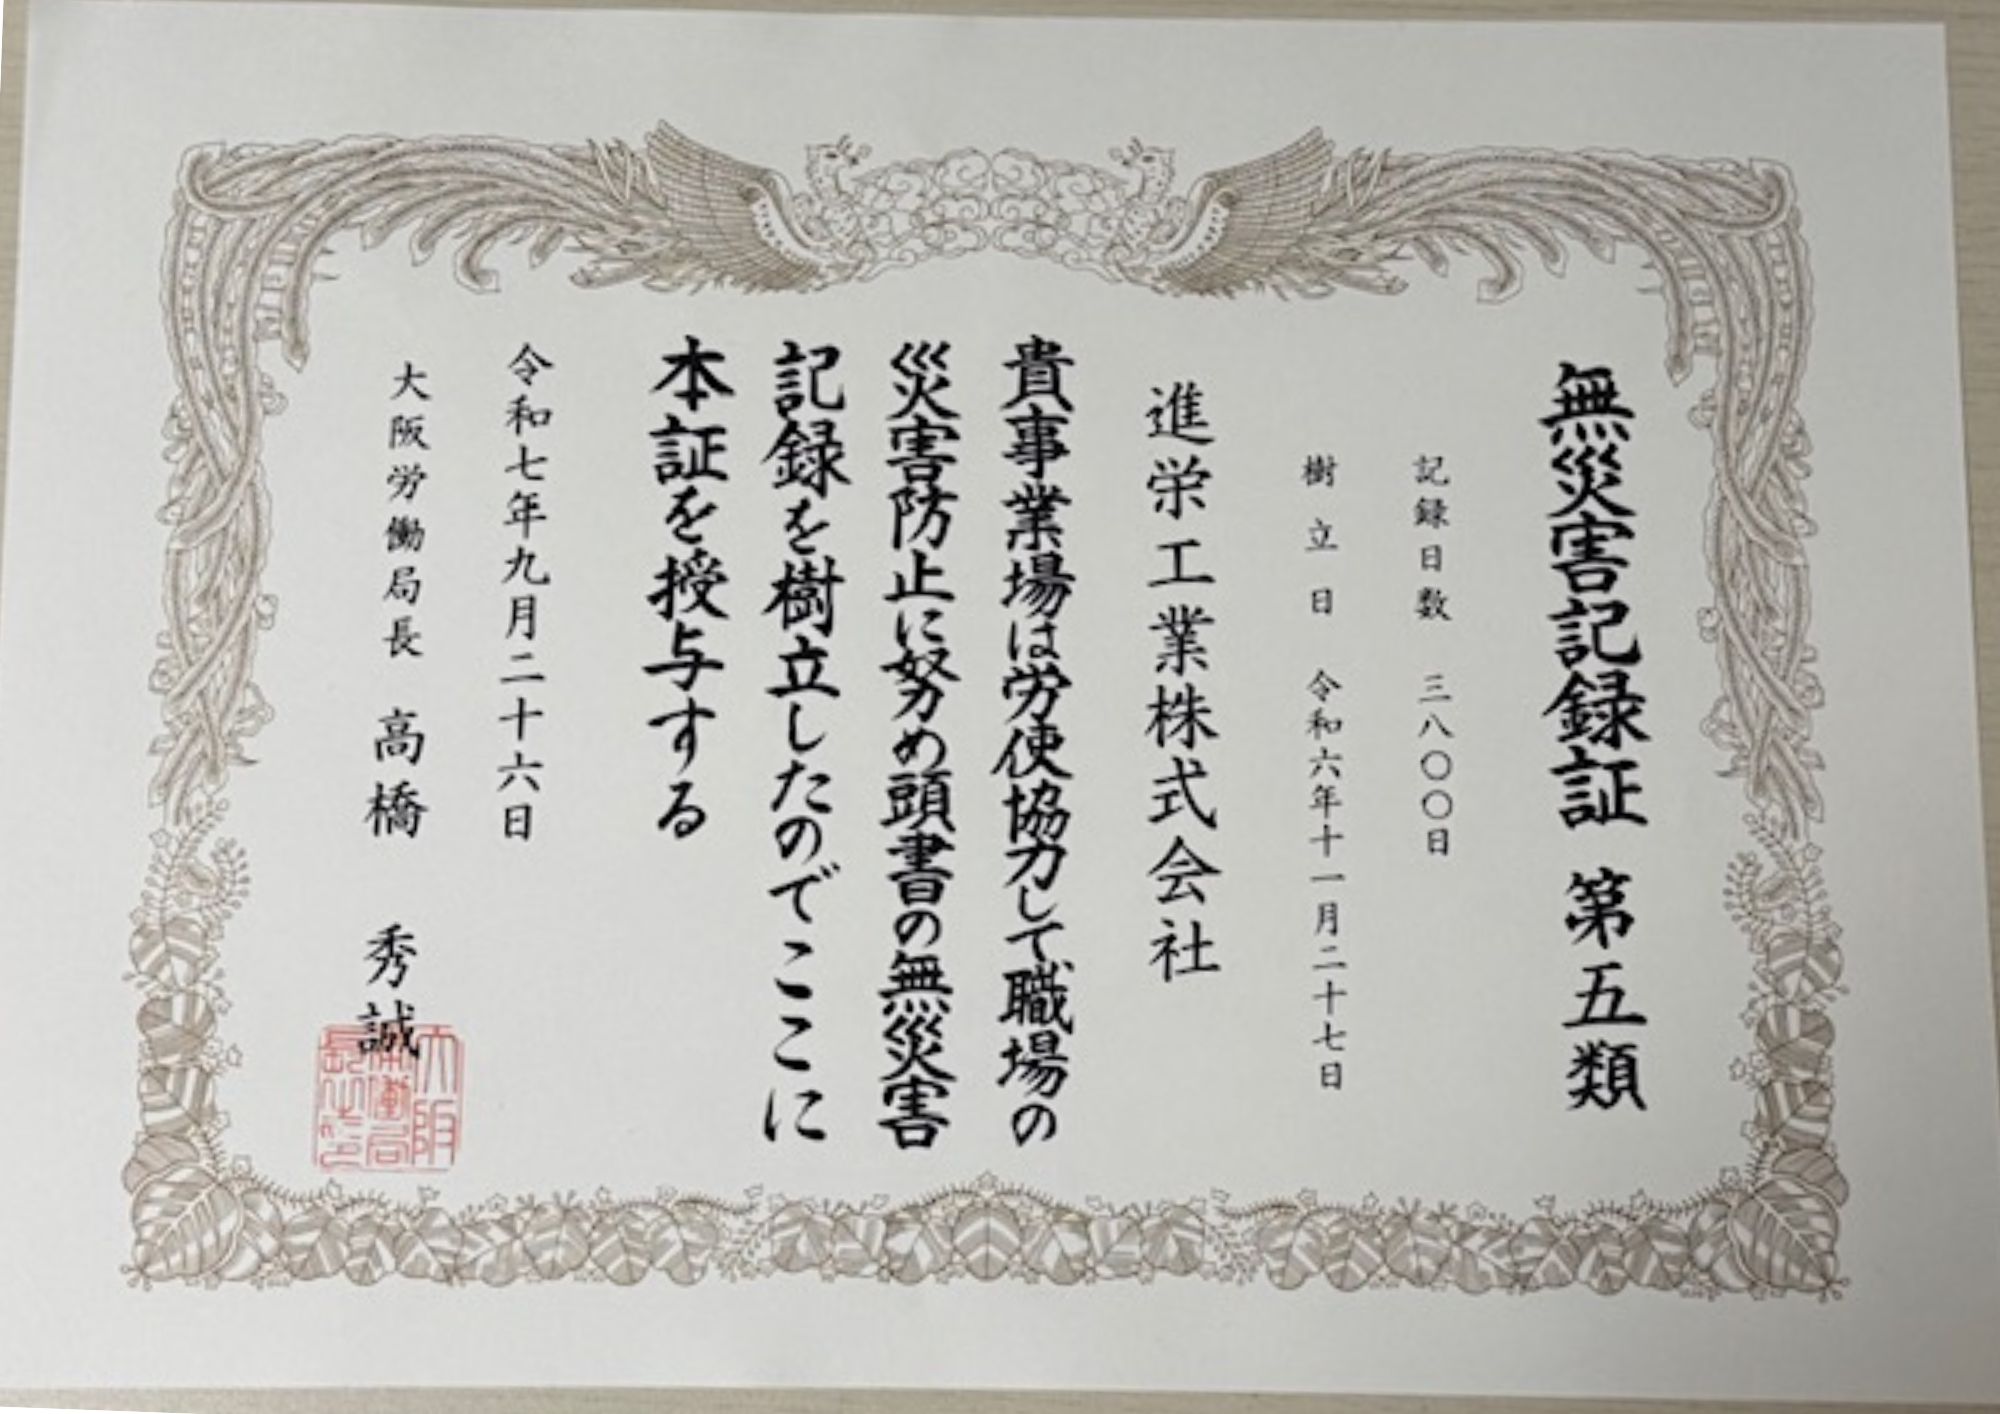 無災害記録証 第五類
記録日数 三八〇〇日
樹立日 令和六年十一月二十七日
進栄工業株式会社
貴事業場は労使協力して職場の
災害防止に努め頭書の無災害
記録を樹立したのでここに
本証を授与する
令和七年九月二十六日
大阪労働局長 高橋 秀誠
大阪
労働局
長之印